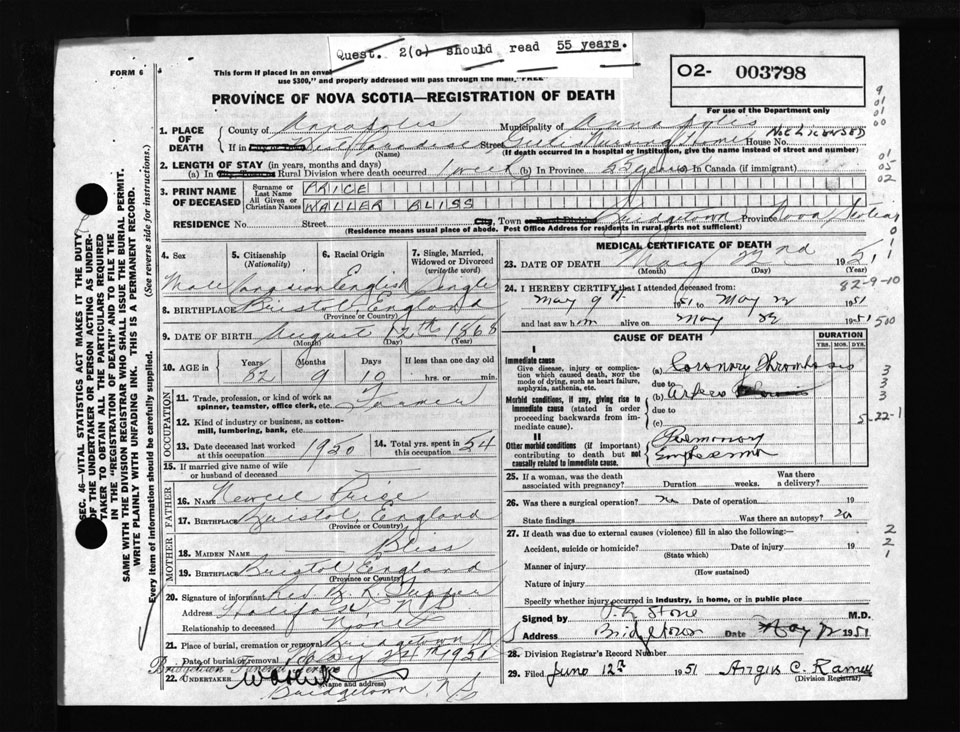 Quest. 2(c) should read 55 years.
FORM 6
This form if placed in an envel
use $300," and properly addressed will pass through the mail, "FREE"
02- 003798
For use of the Department only
PROVINCE OF NOVA SCOTIA—REGISTRATION OF DEATH
1. PLACE OF DEATH
County of Annapolis Municipality of Annapolis
Not Licensed
If in West Paradise Street Nursing Home House No.
(Name) (If death occurred in a hospital or institution, give the name instead of street and number)
2. LENGTH OF STAY (in years, months and days)
(a) In Rural Division where death occurred 1 week (b) In Province 55 years (c) In Canada (if immigrant)
3. PRINT NAME OF DECEASED
Surname or Last Name PRICE
All Given or Christian Names WALLER BLISS
RESIDENCE No. Street City, Town or Rural Division Bridgetown Province Nova Scotia
(Residence means usual place of abode. Post Office Address for residents in rural parts not sufficient)
4. Sex Male
5. Citizenship (Nationality) Canadian
6. Racial Origin English
7. Single, Married, Widowed or Divorced (write the word) Single
8. BIRTHPLACE Bristol, England
(Province or Country)
9. DATE OF BIRTH August 12th 1868
(Month) (Day) (Year)
10. AGE in Years Months Days If less than one day old
82 9 10 hrs. or min.
OCCUPATION
11. Trade, profession, or kind of work as spinner, teamster, office clerk, etc. Farmer
12. Kind of industry or business, as cotton-mill, lumbering, bank, etc.
13. Date deceased last worked at this occupation 1950
14. Total yrs. spent in this occupation 54
15. If married give name of wife or husband of deceased
FATHER
16. NAME Newell Price
17. BIRTHPLACE Bristol, England
(Province or Country)
MOTHER
18. MAIDEN NAME Bliss
19. BIRTHPLACE Bristol England
(Province or Country)
20. Signature of informant Rev. Tupper
Address Halifax N.S.
Relationship to deceased None
21. Place of burial, cremation or removal Bridgetown
Date of burial or removal May 24th 1951
Bridgetown Funeral Service
22. UNDERTAKER
(Name and address)
Bridgetown, N.S.
MEDICAL CERTIFICATE OF DEATH
23. DATE OF DEATH May 22nd 1951
(Month) (Day) (Year)
82-9-10
24. I HEREBY CERTIFY that I attended deceased from:
May 9th 1951 to May 22 1951
and last saw him alive on May 22 1951
500
CAUSE OF DEATH
DURATION
YRS. MOS. DYS.
I
Immediate cause
Give disease, injury or complication which caused death, NOT the mode of dying, such as heart failure, asphyxia, asthenia, etc.
(a) Coronary Thrombosis
due to
Morbid conditions, if any, giving rise to immediate cause (stated in order proceeding backwards from immediate cause).
(b) Arterio
due to
(c)
5-22-1
II
Other morbid conditions (if important) contributing to death but not causally related to immediate cause.
Pulmonary
Emphysema
25. If a woman, was the death associated with pregnancy? Duration weeks. Was there a delivery?
26. Was there a surgical operation? No Date of operation 19
State findings Was there an autopsy? No
27. If death was due to external causes (violence) fill in also the following:
Accident, suicide or homicide? Date of injury 19
(State which)
Manner of injury
(How sustained)
Nature of injury
Specify whether injury occurred in industry, in home, or in public place
Signed by Stone M.D.
Address Bridgetown Date May 1951
28. Division Registrar's Record Number
29. Filed June 12th 1951 Angus C. Ramey
(Division Registrar)
SEC. 46—VITAL STATISTICS ACT MAKES IT THE DUTY OF THE UNDERTAKER OR PERSON ACTING AS UNDERTAKER TO OBTAIN ALL THE PARTICULARS REQUIRED IN THE "REGISTRATION OF DEATH" AND TO FILE THE SAME WITH THE DIVISION REGISTRAR WHO SHALL ISSUE THE BURIAL PERMIT.
WRITE PLAINLY WITH UNFADING INK. THIS IS A PERMANENT RECORD.
Every item of information should be carefully supplied. (See reverse side for instructions.)
9
01
01
00
01
05
02
1
0
1
3
3
3
2
2
1